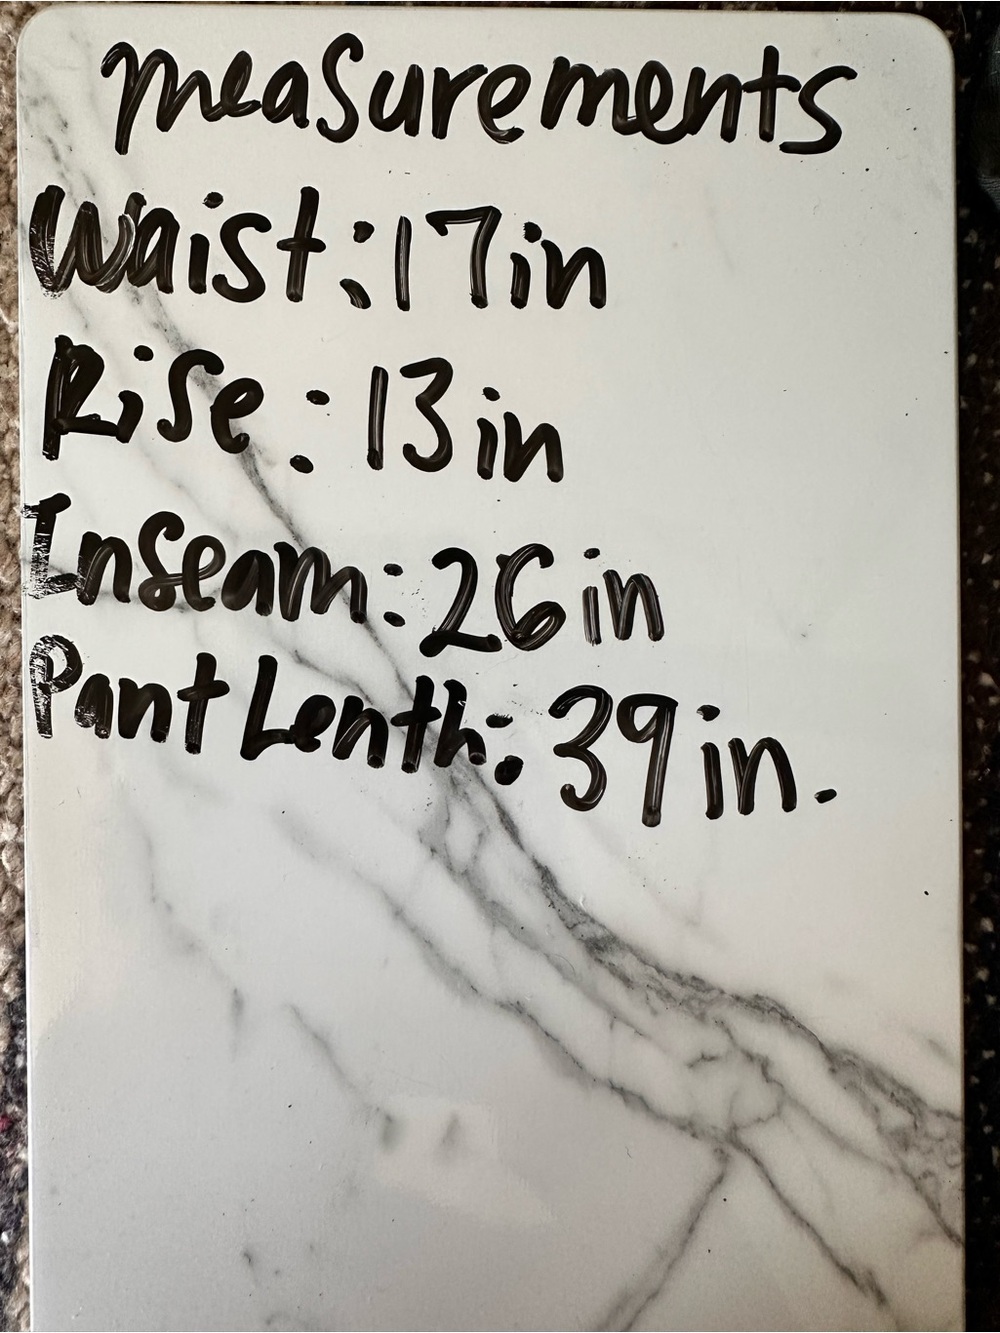 measurements
Waist: 17in
Rise: 13in
Inseam: 26in
Pant Lenth: 39in.